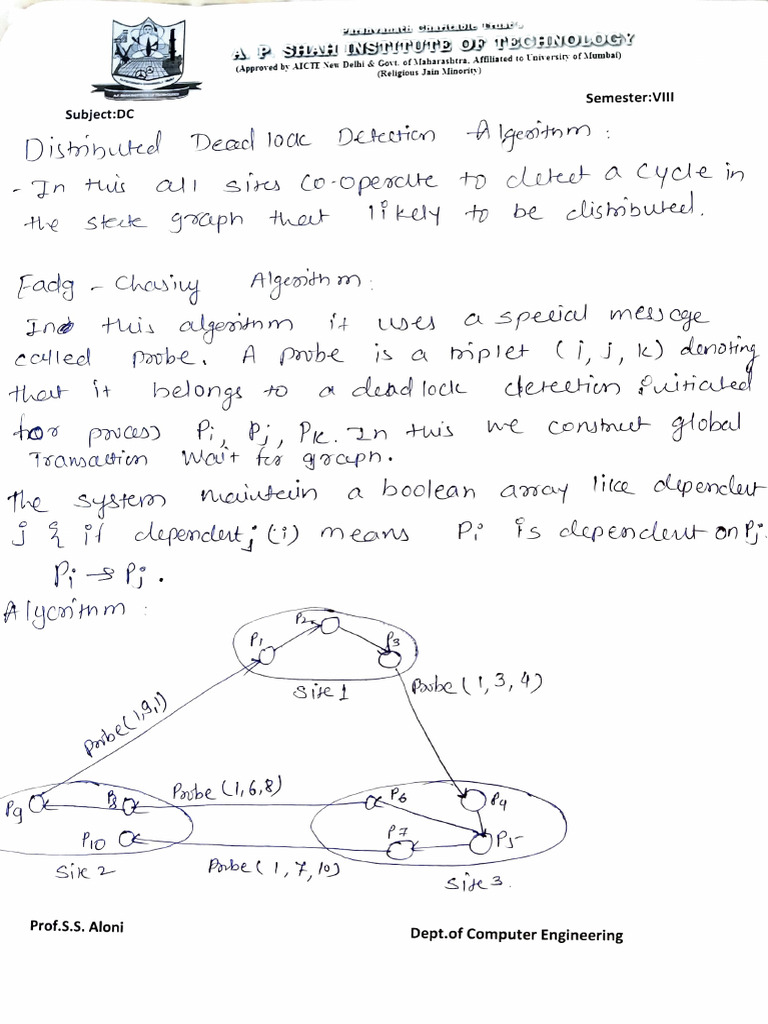 Parshvanath Charitable Trust's
A. P. SHAH INSTITUTE OF TECHNOLOGY
(Approved by AICTE New Delhi & Govt. of Maharashtra, Affiliated to University of Mumbai)
(Religious Jain Minority)
Semester:VIII
Subject:DC
Distributed Deadlock Detection Algorithm :
- In this all sites co-operate to detect a cycle in
the state graph that likely to be distributed.
Eadg - Chasing Algorithm :
In this algorithm it uses a special message
called probe. A probe is a triplet (i, j, k) denoting
that it belongs to a deadlock detection initiated
for process Pi, Pj, Pk. In this we construct global
Transaction Wait for graph.
The system maintain a boolean array like dependent
j & if dependent j (i) means Pi is dependent on Pj.
Pi → Pj .
Algorithm :
P1 P2 P3
Site 1
Probe (1, 3, 4)
Probe(1,9,1)
Probe (1,6,8)
P9 P8 P6 P4
P10 P7 P5
Site 2
Probe (1, 7, 10)
Site 3.
Prof.S.S. Aloni
Dept.of Computer Engineering